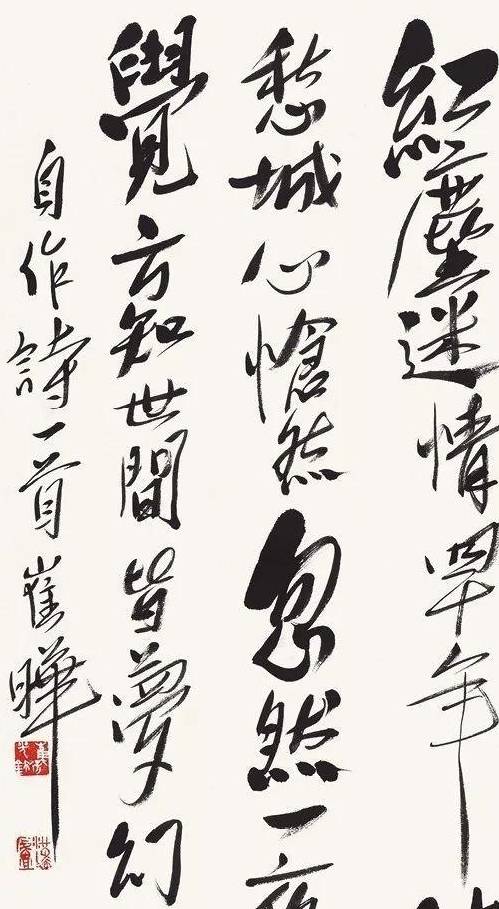 紅塵迷情四十年
愁城心愴然忽然一夜
覺方知世間皆夢幻
自作詩一首崔曄